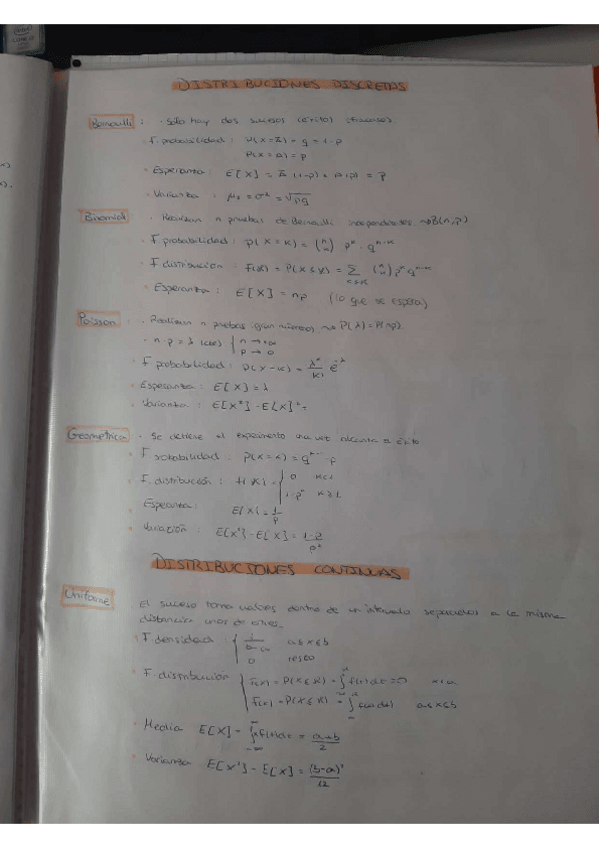 DISTRIBUCIONES DISCRETAS
Bernoulli : · Sólo hay dos sucesos (éxito) (fracaso)
· F. probabilidad : P(X=Ā) = q = 1-p
P(X=A) = p
· Esperanza : E[X] = Ā (1-p) + A(p) = p
· Varianza : μ₂ = σ² = √pq
Binomial · Realizan n pruebas de Bernoulli independientes ~B(n,p)
· F probabilidad : P(X=K) = (n K) pᴷ · qⁿ⁻ᴷ
· F distribución : F(K) = P(X≤K) = Σ (n K) pᴷ qⁿ⁻ᴷ
· Esperanza : E[X] = np (lo que se espera)
Poisson : · Realizan n pruebas (gran número) ~ P(λ) = P(np)
· n·p = λ (cte) { n → +∞
p → 0
· F probabilidad : P(X=K) = λᴷ/K! e^-λ
· Esperanza : E[X] = λ
· Varianza : E[X²] - E[X]² =
Geometrica · Se detiene el experimento una vez alcanza a éxito
· F probabilidad : P(X=K) = qᴷ⁻ p
· F. distribución : 0 K<1
K≥1
· Esperanza: E[X] = 1/p
· Variación : E[X²] - E[X] =
DISTRIBUCIONES CONTINUAS
Uniforme · El suceso toma valores dentro de un intervalo separados a la misma
distancia unos de otros.
· F. densidad : { a≤x≤b
0 resto
· F. distribución { F(x) = P(X≤x) = ∫ f(t)dt = 0 x<a
F(x) = P(X≤x) = ∫ a≤x≤b
· Media E[X] = ∫ = a+b/2
· Varianza E[X²] - E[X] = (b-a)²/12